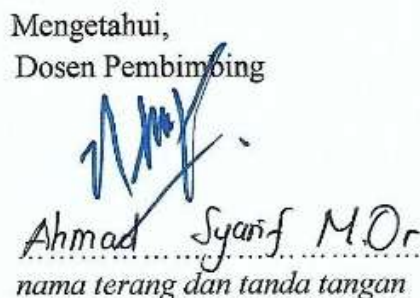 Mengetahui,
Dosen Pembimbing
Ahmad Syarif M.Or
nama terang dan tanda tangan